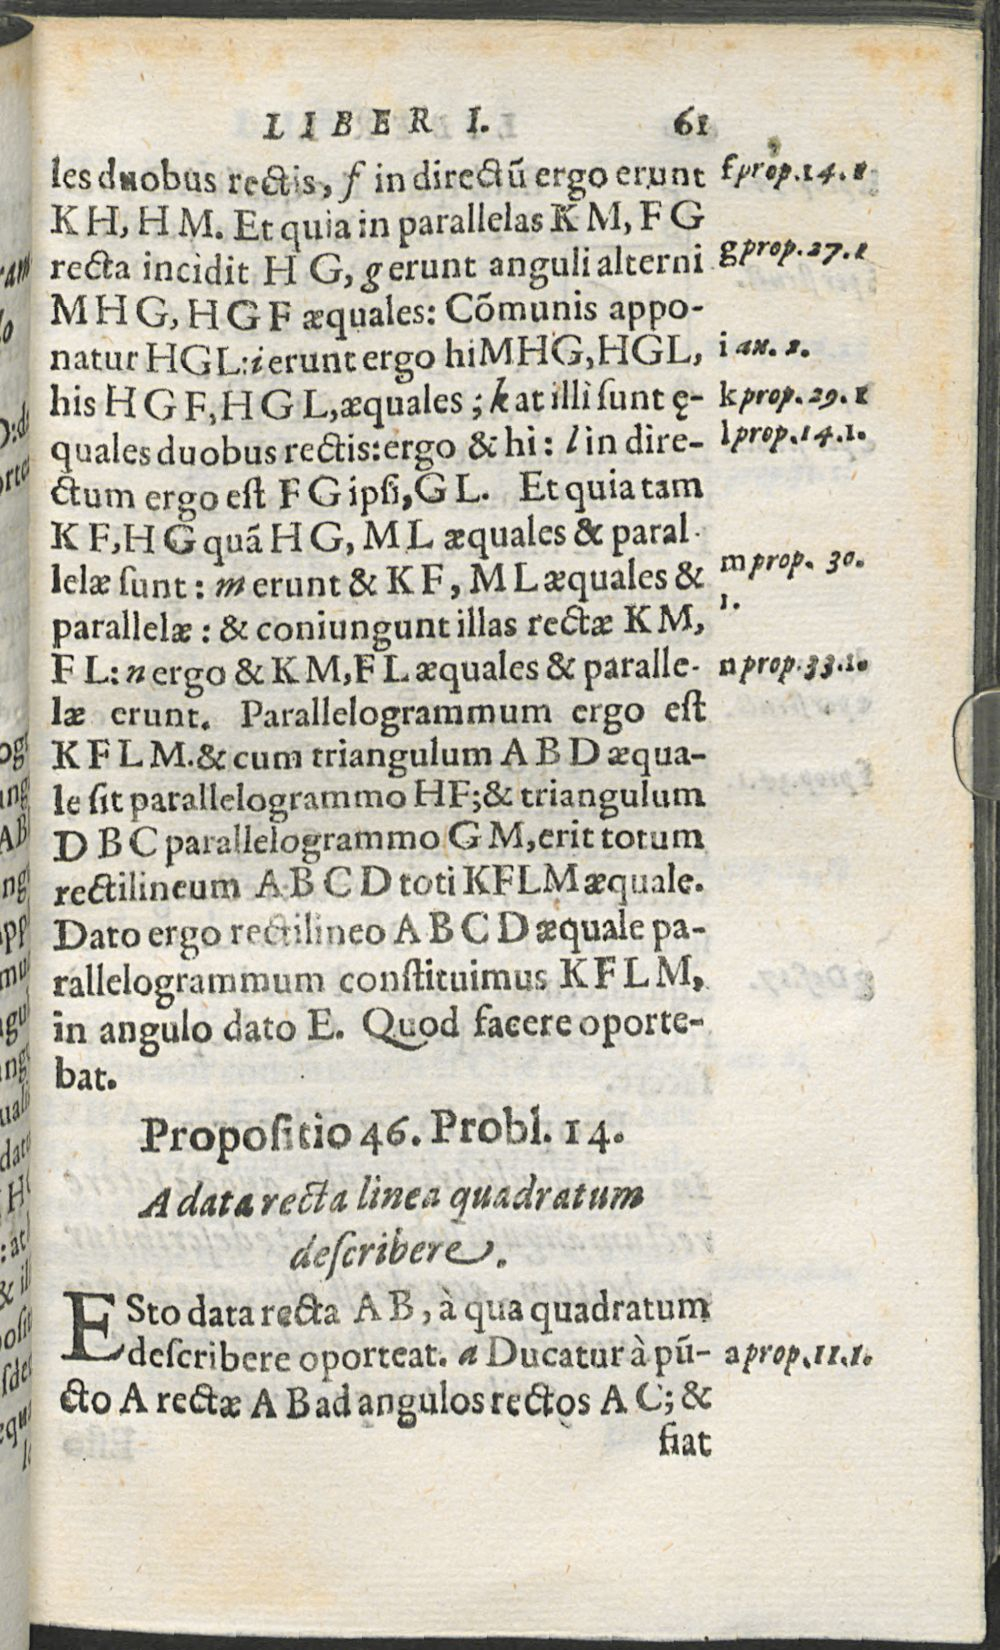 LIBER I. 61
les duobus rectis, f in directū ergo erunt
K H, H M. Et quia in parallelas K M, F G
recta incidit H G, g erunt anguli alterni
M H G, H G F æquales: Cõmunis appo-
natur HGL: i erunt ergo hi MHG, HGL,
his H G F, H G L, æquales; k at illi sunt ę-
quales duobus rectis: ergo & hi: l in dire-
ctum ergo est F G ipsi, G L. Et quia tam
K F, H G quã H G, M L æquales & paral-
lelæ sunt: m erunt & K F, M L æquales &
parallelæ: & coniungunt illas rectæ K M,
F L: n ergo & K M, F L æquales & paralle-
læ erunt. Parallelogrammum ergo est
K F L M. & cum triangulum A B D æqua-
le sit parallelogrammo HF; & triangulum
D B C parallelogrammo G M, erit totum
rectilineum A B C D toti KFLM æquale.
Dato ergo rectilineo A B C D æquale pa-
rallelogrammum constituimus K F L M,
in angulo dato E. Quod facere oporte-
bat.
f prop. 14. 1
g prop. 27. 1
i ax. 2.
k prop. 29. 1
l prop. 14. 1.
m prop. 30.
1.
n prop. 33. 1.
Propositio 46. Probl. 14.
A data recta linea quadratum
describere.
ESto data recta A B, à qua quadratum
describere oporteat. a Ducatur à pū-
cto A rectæ A B ad angulos rectos A C; &
fiat
a prop. 11. 1.